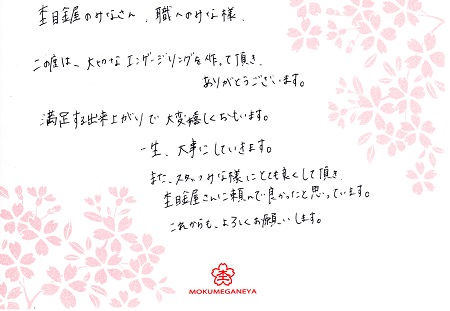 杢目金屋のみなさん、職人のみな様、
この度は、大切なエンゲージリングを作って頂き、
ありがとうございます。
満足する出来上がりで大変嬉しくおもいます。
一生、大事にしていきます。
また、スタッフみな様にとても良くして頂き、
杢目金屋さんに頼んで良かったと思っています。
これからも、よろしくお願いします。
MOKUMEGANEYA